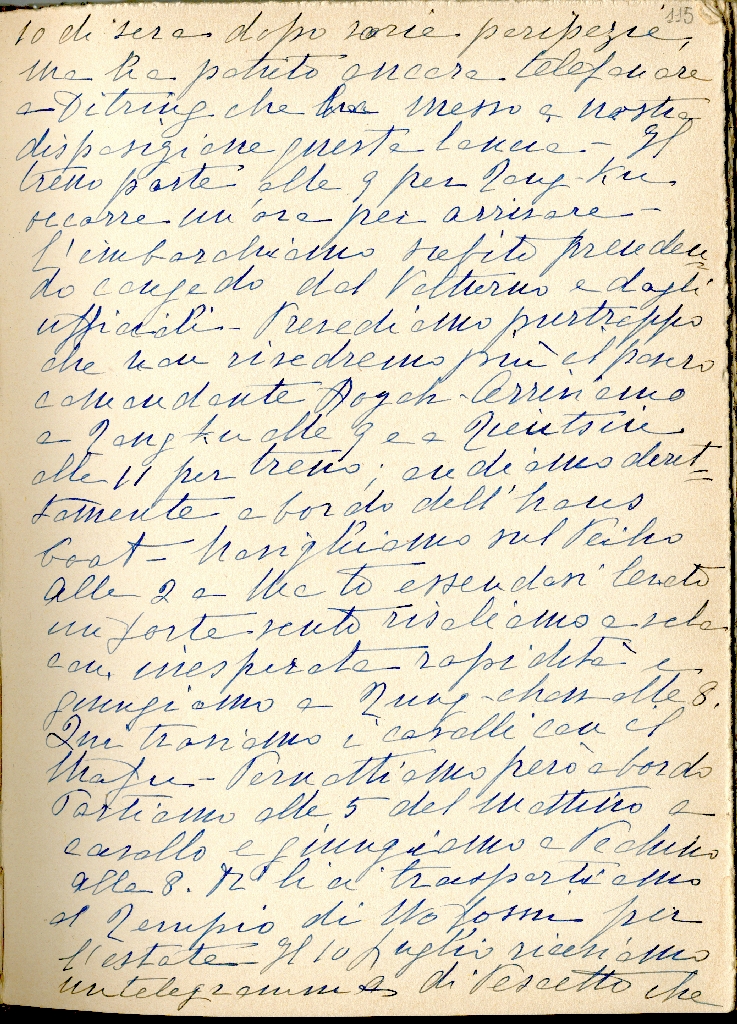 115
10 di sera dopo varie peripezie,
ma ha potuto ancora telefonare
a Ditring che ha messo a nostra
disposizione questa lancia - Il
treno parte alle 9 per Tang-Ku
occorre un'ora per arrivare -
L'imbarchiamo subito prenden=
do congedo dal Volturno e dagli
ufficiali - Prevediamo purtroppo
che non rivedremo più il povero
comandante - Arriviamo
a Tangku alle 9 e a Tientsin
alle 11 per treno; andiamo diret=
tamente a bordo dell'haus
boat - Navighiamo sul Peiho
alle 2 a Ma to essendosi levato
un forte vento risaliamo a vela
con inesperata rapidità e
giungiamo a Tung-chow alle 8.
Qui troviamo i cavalli con il
Mafu - Pernottiamo però a bordo
Partiamo alle 5 del mattino a
cavallo e giungiamo a Pechino
alle 8. Di lì ci trasportiamo
al Tempio di per
l'estate - Il 10 Luglio riceviamo
un telegramma di Vescetto che